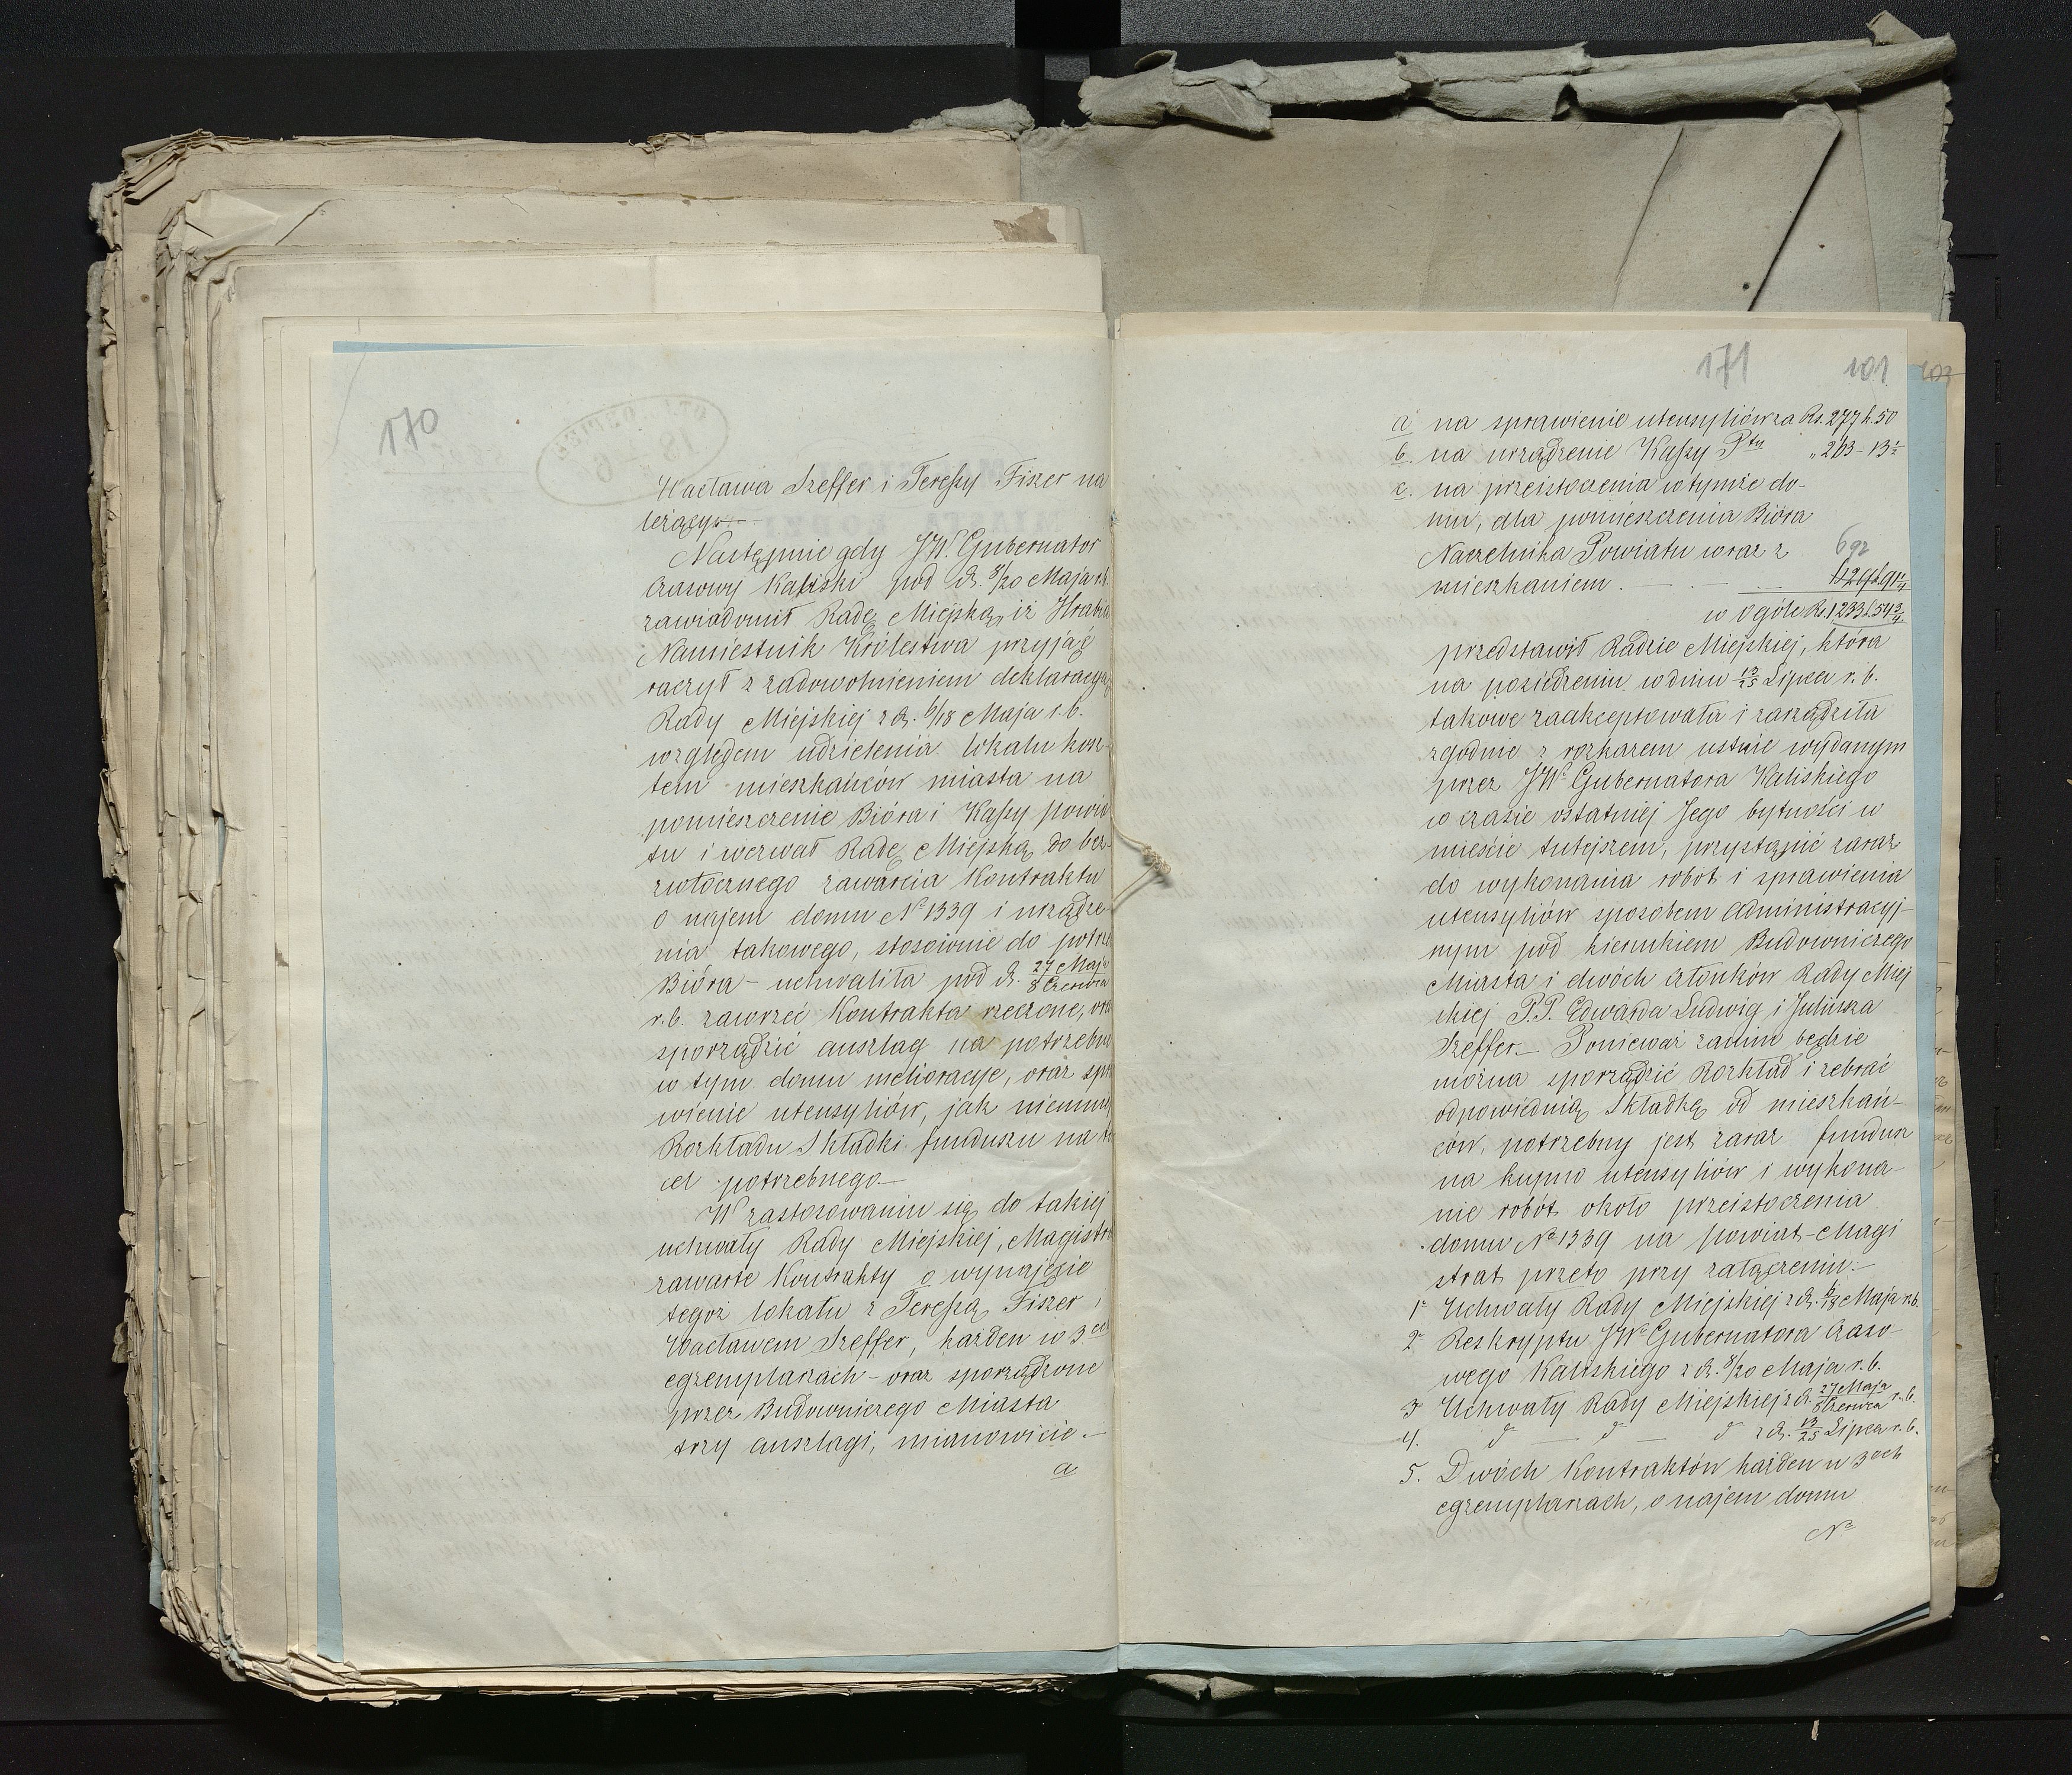 170
Wacława Szeffer i Teressy Fiszer na
leżącym—
Następnie gdy JW. Gubernator
Czasowy Kaliski pod d. 8/20 Maja r.b.
zawiadomił Radę Miejską, iż Hrabia
Namiestnik Królestwa przyjąć
raczył z zadowolnieniem deklaracyą
Rady Miejskiej z d. 6/18 Maja r.b.
względem udzielenia lokalu kosz-
tem mieszkańców miasta na
pomieszczenie Bióra i Kassy powia
tu i wezwał Radę Miejską do bez-
zwłocznego zawarcia Kontraktu
o najem domu No 1339 i urządze-
nia takowego, stosownie do potrze
Bióra – uchwaliła pod d. 27 Maja / 8 Czerwca
r.b. zawrzeć Kontrakta rzeczone,
sporządzić anszlag na potrzebne
w tym domu melioracye, oraz spra
wienie utensyliów, jak niemniej
Rozkładu Składki funduszu na
cel potrzebnego—
W zastosowaniu się do takiej
uchwały Rady Miejskiej, Magistra
zawarte Kontrakty o wynajęcie
tegoż lokalu z Teressą Fiszer,
Wacławem Szeffer, każden w 3ch
egzemplarzach – oraz sporządzone
przez Budowniczego Miasta
trzy anszlagi, mianowicie.—
a
171 101 103
a na sprawienie utensyliów za Rs. 277 k. 50
b. na urządzenie Kassy Ptu „ 203 – 13½
c. na przeistoczenia w tymże do-
mu, dla pomieszczenia Bióra
Naczelnika Powiatu wraz z 692
mieszkaniem . —
w ogóle Rs. 1233 k. 54¾
przedstawił Radzie Miejskiej, która
na posiedzeniu w dniu 13/25 Lipca r.b.
takowe zaakceptowała i zarządziła
zgodnie z rozkazem ustnie wydanym
przez JW. Gubernatora Kaliskiego
w czasie ostatniej Jego bytności w
mieście tutejszem, przystąpić zaraz
do wykonania robót i sprawienia
utensyliów sposobem Administracyj-
nym pod kierunkiem Budowniczego
Miasta i dwóch członków Rady Miej
skiej P.P. Edwarda Ludwig i Juliusza
Szeffer— Ponieważ zanim będzie
można sporządzić Rozkład i zebrać
odpowiednią Składkę od mieszkań-
ców, potrzebny jest zaraz fundusz
na kupno utensyliów i wykona-
nie robót około przeistoczenia
domu No 1339 na powiat – Magi
strat przeto przy załączeniu:—
1o Uchwały Rady Miejskiej z d. 6/18 Maja r.b.
2o Reskryptu JWo Gubernatora Czaso-
wego Kaliskiego z d. 8/20 Maja r.b.
3o Uchwały Rady Miejskiej z d. 27 Maja / 8 Czerwca r.b.
4. d — d — d z d. 13/25 Lipca r.b.
5. Dwóch Kontraktów każden w 3ech
egzemplarzach, o najem domu
No